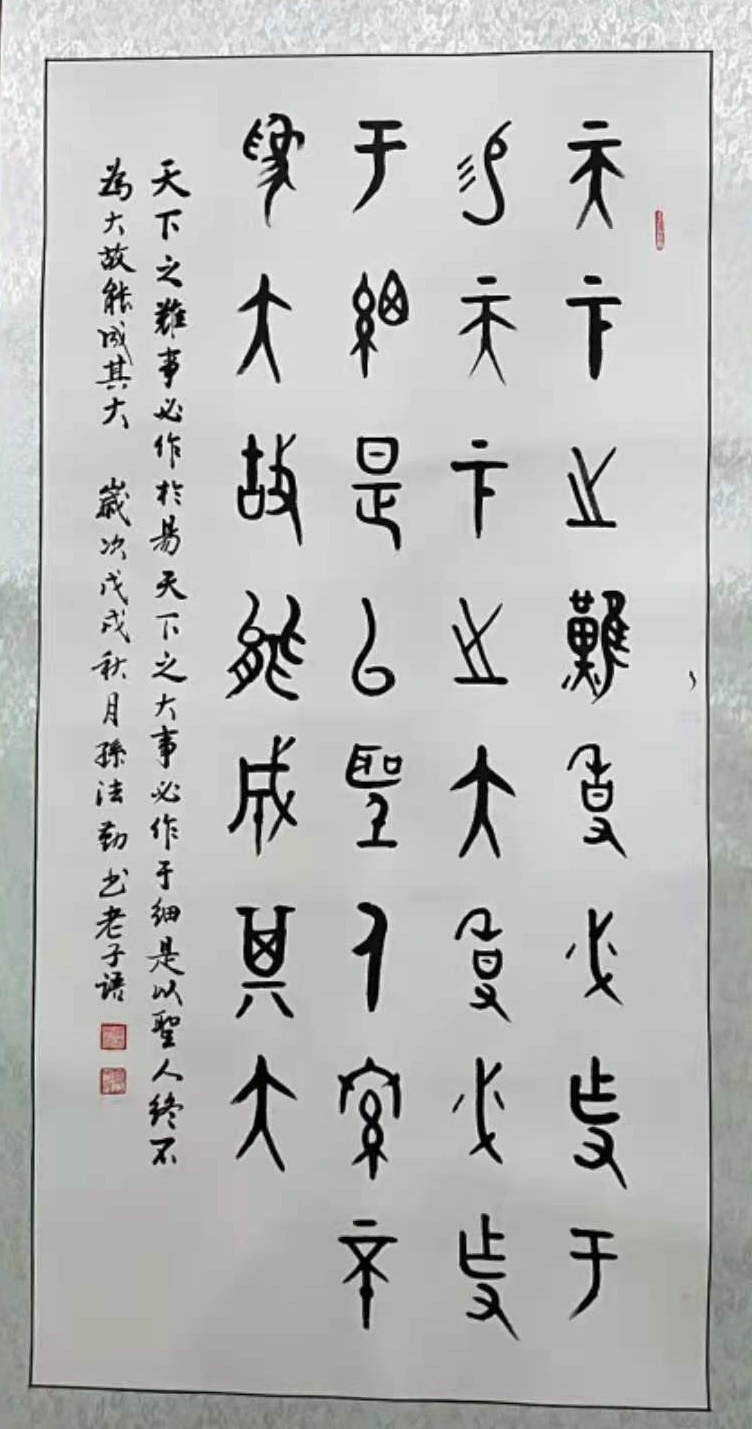 天下之難事必作于
易天下之大事必作
于細是以聖人終不
為大故能成其大
天下之難事必作於易天下之大事必作于細是以聖人終不
為大故能成其大 歲次戊戌秋月孫法勤書老子語